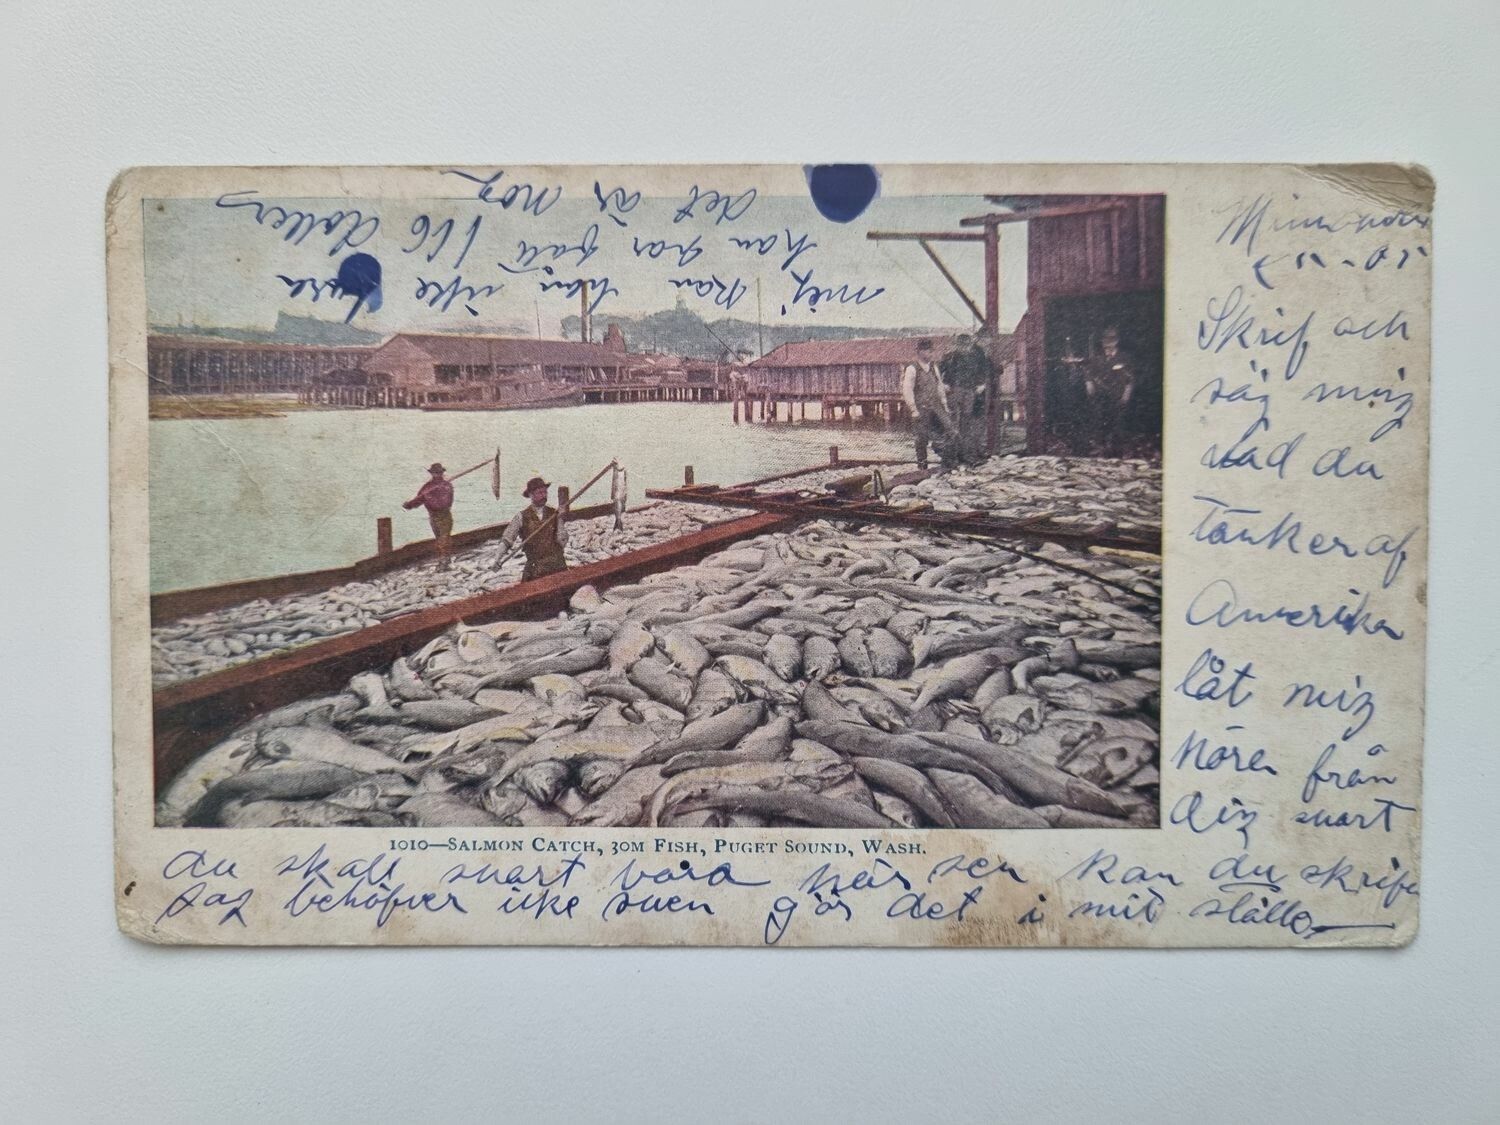 Skrif och
säg mig
vad du
tänker af
Amerika
låt mig
höra från
dig snart
1010—SALMON CATCH, 30M FISH, PUGET SOUND, WASH.
du skall snart vara här sen kan du skrifva
Jag behöfver icke suen gör det i mit ställe
mig kan han icke lura
han har fått 116 dollers
det är nog